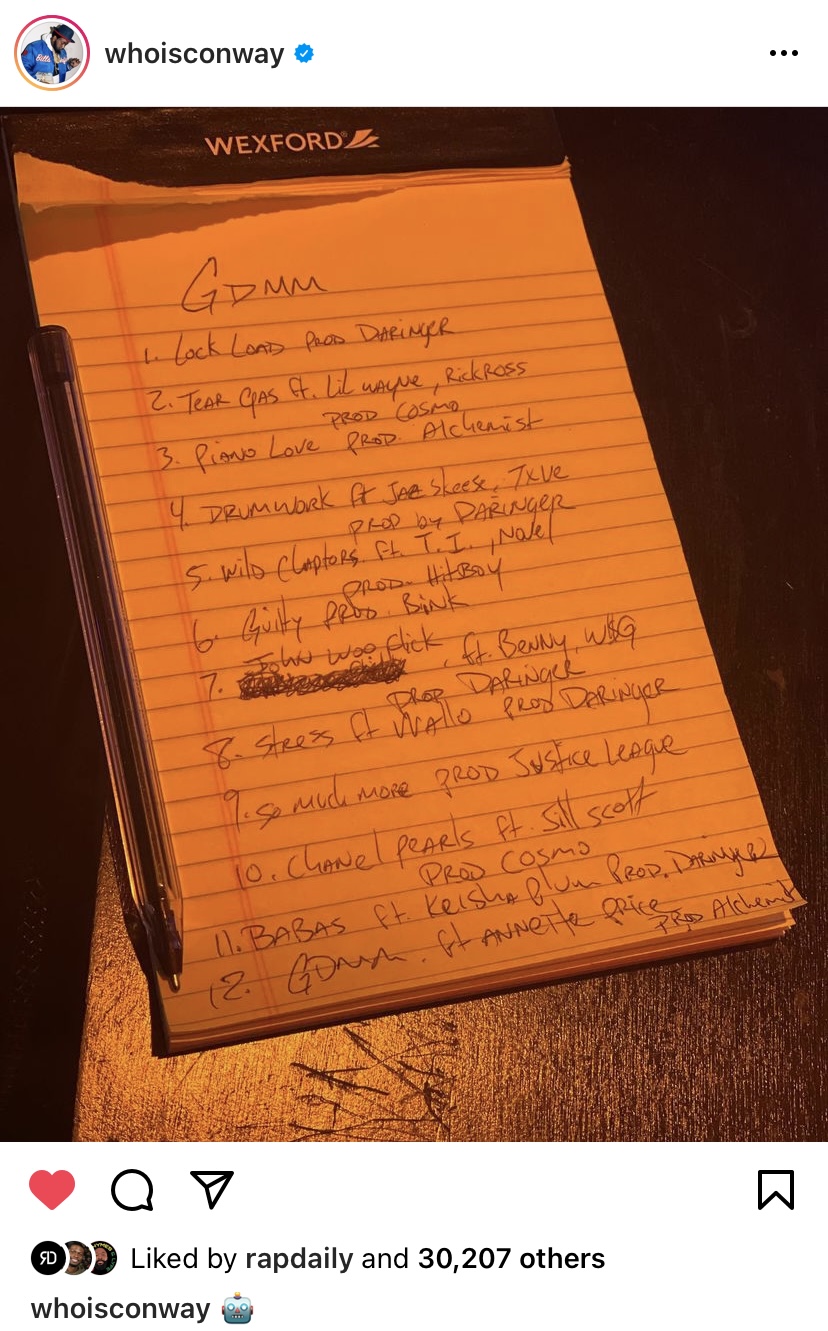 whoisconway
WEXFORD
GDMM
1. Lock Load Prod Daringer
2. Tear Gas ft. Lil wayne, Rick Ross
Prod Cosmo
3. Piano Love Prod. Alchemist
4. Drumwork ft Jae Skeese, 7xve
Prod by Daringer
5. Wild Chaptors ft. T.I., Novel
Prod. HitBoy
6. Guilty Prod. Bink
John Woo flick
7. , ft. Benny, W$G
Prod Daringer
8. Stress ft Wallo Prod Daringer
9. So much more Prod Justice League
10. Chanel Pearls ft. Jill Scott
Prod Cosmo
11. Babas ft. Keisha Plum Prod. Daringer
12. GDMM. ft Annette Price
Prod Alchemist
RD
Liked by rapdaily and 30,207 others
whoisconway 🤖